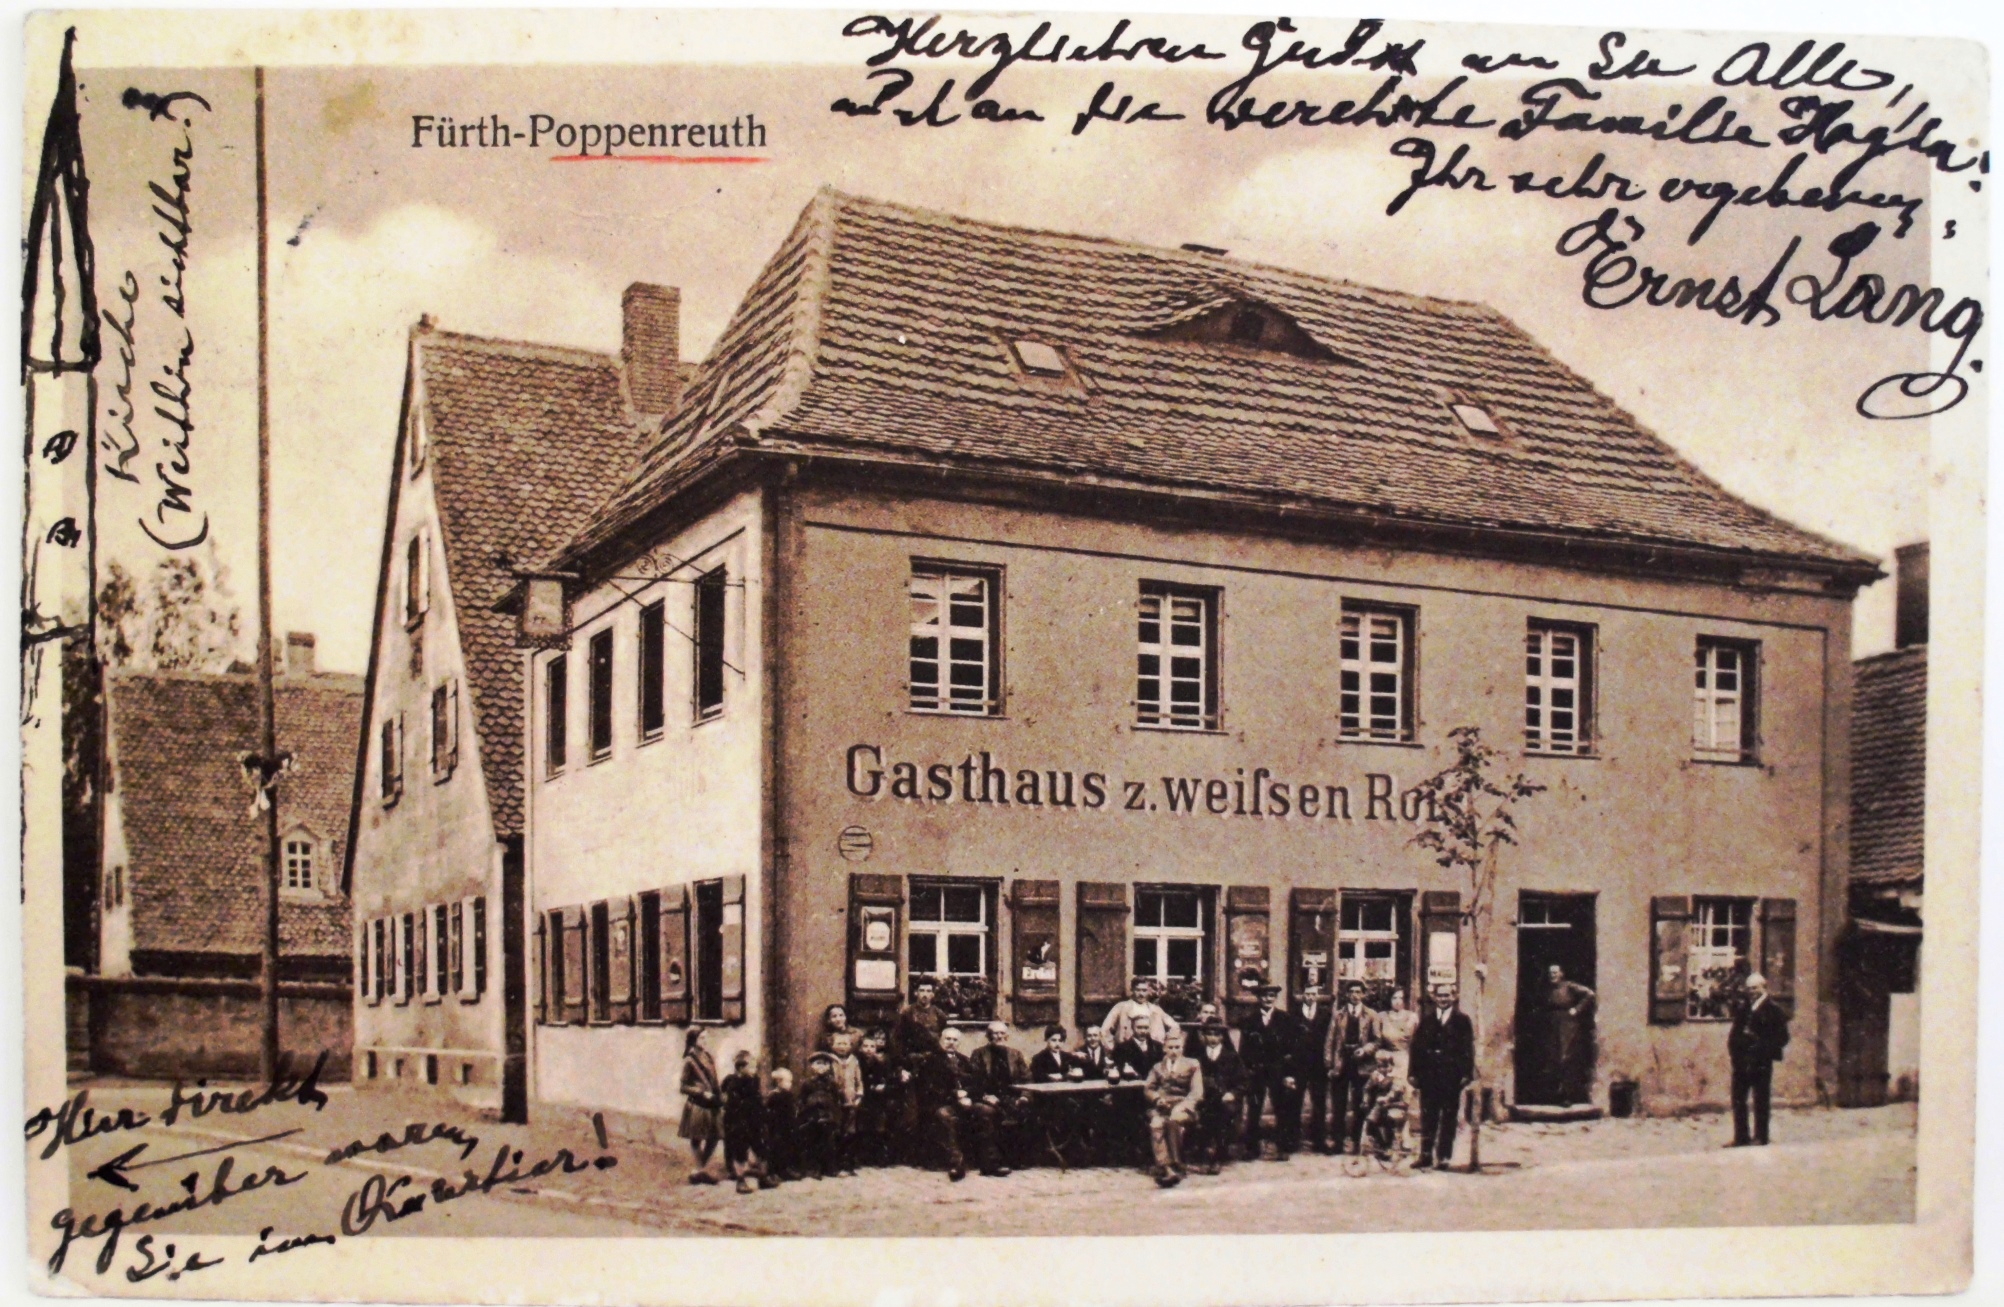 Herzlichen Gruß an Sie Alle,
auch an die verehrte Familie
Ihr sehr ergebener
Dr
Ernst Lang.
Fürth-Poppenreuth
Kirche
(Weithin sichtbar!)
Gasthaus z. weiſsen Roß
Erdal
MAGGI
Hier direkt
gegenüber waren
Sie im Quartier!